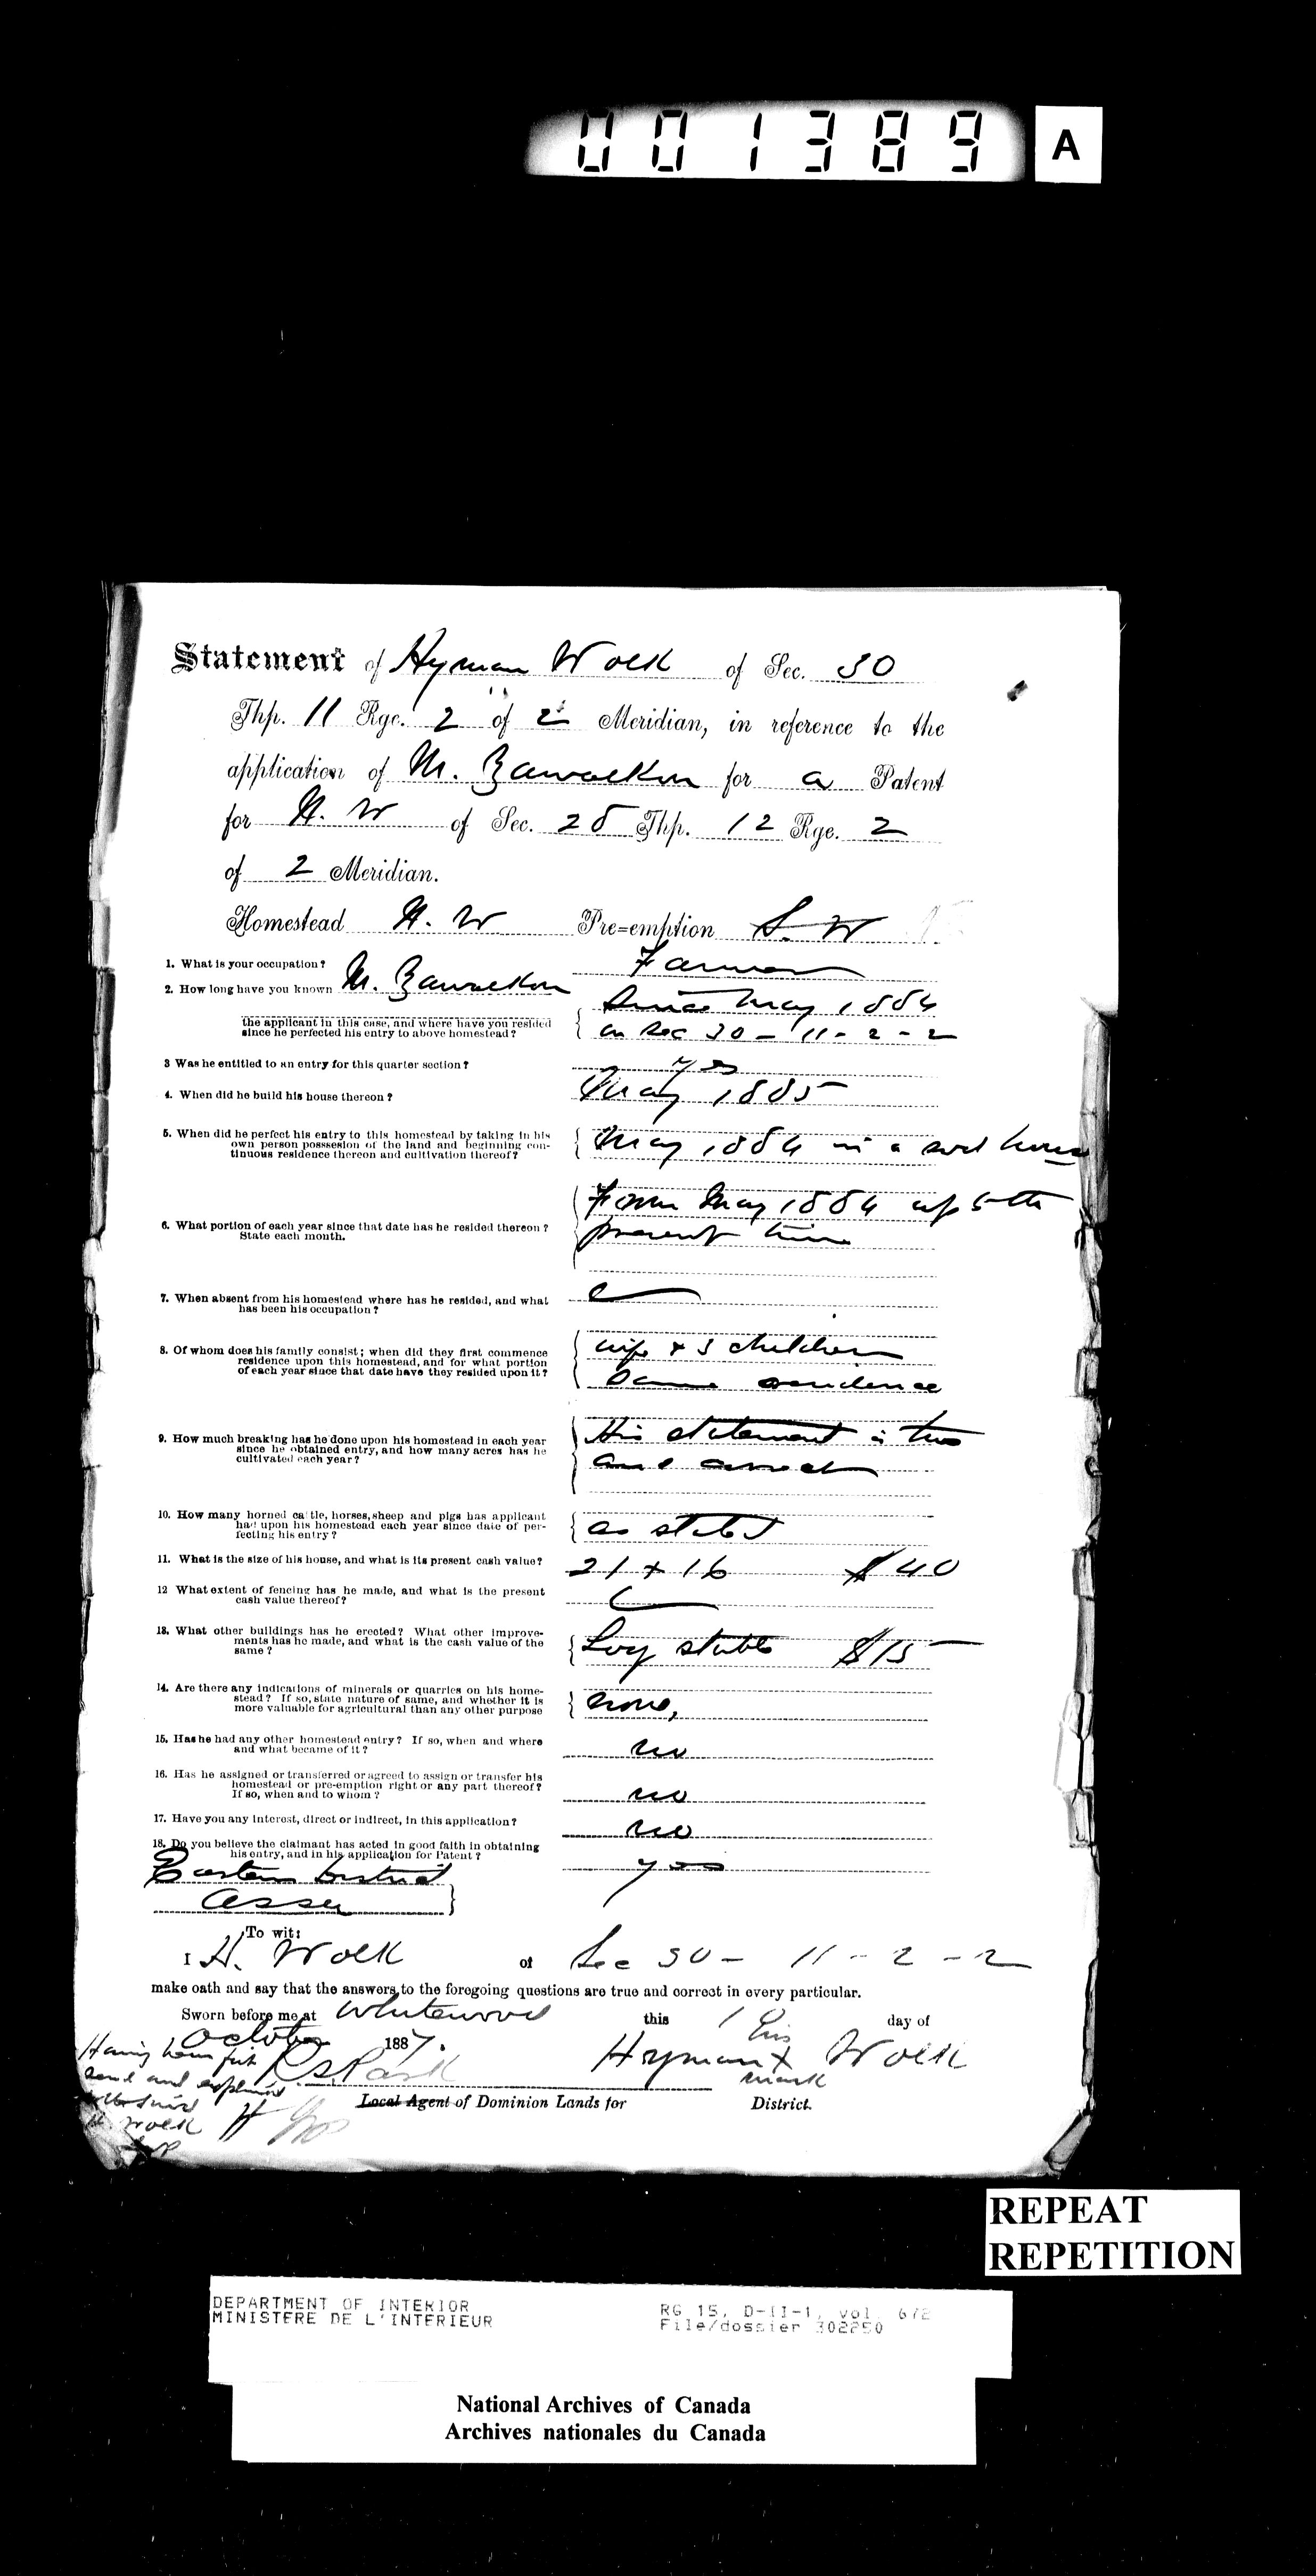 001389 A
Statement of Hyman Wolk of Sec. 30
Thp. 11 Rge. 2 of 2 Meridian, in reference to the
application of M. Zawalkon for a Patent
for N. W of Sec. 28 Thp. 12 Rge. 2
of 2 Meridian.
Homestead N. W Pre=emption S. W
1. What is your occupation? Farmer
2. How long have you known M. Zawalkon Since May 1884
the applicant in this case, and where have you resided on Sec 30 - 11 - 2 - 2
since he perfected his entry to above homestead?
3 Was he entitled to an entry for this quarter section? yes
4. When did he build his house thereon? May 1885
5. When did he perfect his entry to this homestead by taking in his May 1884 in a sod house
own person posssesion of the land and beginning con-
tinuous residence thereon and cultivation thereof?
From May 1884 up to the
6. What portion of each year since that date has he resided thereon? present time
State each month.
7. When absent from his homestead where has he resided, and what
has been his occupation?
8. Of whom does his family consist; when did they first commence wife + 3 children
residence upon this homestead, and for what portion
of each year since that date have they resided upon it? Same residence
9. How much breaking has he done upon his homestead in each year His statement is true
since he obtained entry, and how many acres has he
cultivated each year? and correct
10. How many horned cattle, horses, sheep and pigs has applicant
had upon his homestead each year since date of per- as stated
fecting his entry?
11. What is the size of his house, and what is its present cash value? 21 + 16 $ 40
12 What extent of fencing has he made, and what is the present
cash value thereof?
13. What other buildings has he erected? What other improve-
ments has he made, and what is the cash value of the Log stable $15
same?
14. Are there any indications of minerals or quarries on his home-
stead? If so, state nature of same, and whether it is none,
more valuable for agricultural than any other purpose
15. Has he had any other homestead entry? If so, when and where no
and what became of it?
16. Has he assigned or transferred or agreed to assign or transfer his
homestead or pre-emption right or any part thereof? no
If so, when and to whom?
17. Have you any interest, direct or indirect, in this application? no
18. Do you believe the claimant has acted in good faith in obtaining
his entry, and in his application for Patent? yes
Eastern District
Assa
To wit:
I H. Wolk of Sec 30 - 11 - 2 - 2
make oath and say that the answers to the foregoing questions are true and correct in every particular.
Sworn before me at Whitewood this 1 day of
October 1887. his
Having been first Hyman X Wolk
read and explained mark
Local Agent of Dominion Lands for District.
Wolk
REPEAT
REPETITION
DEPARTMENT OF INTERIOR RG 15, D-II-1, vol. 672
MINISTERE DE L'INTERIEUR File/dossier 302250
National Archives of Canada
Archives nationales du Canada